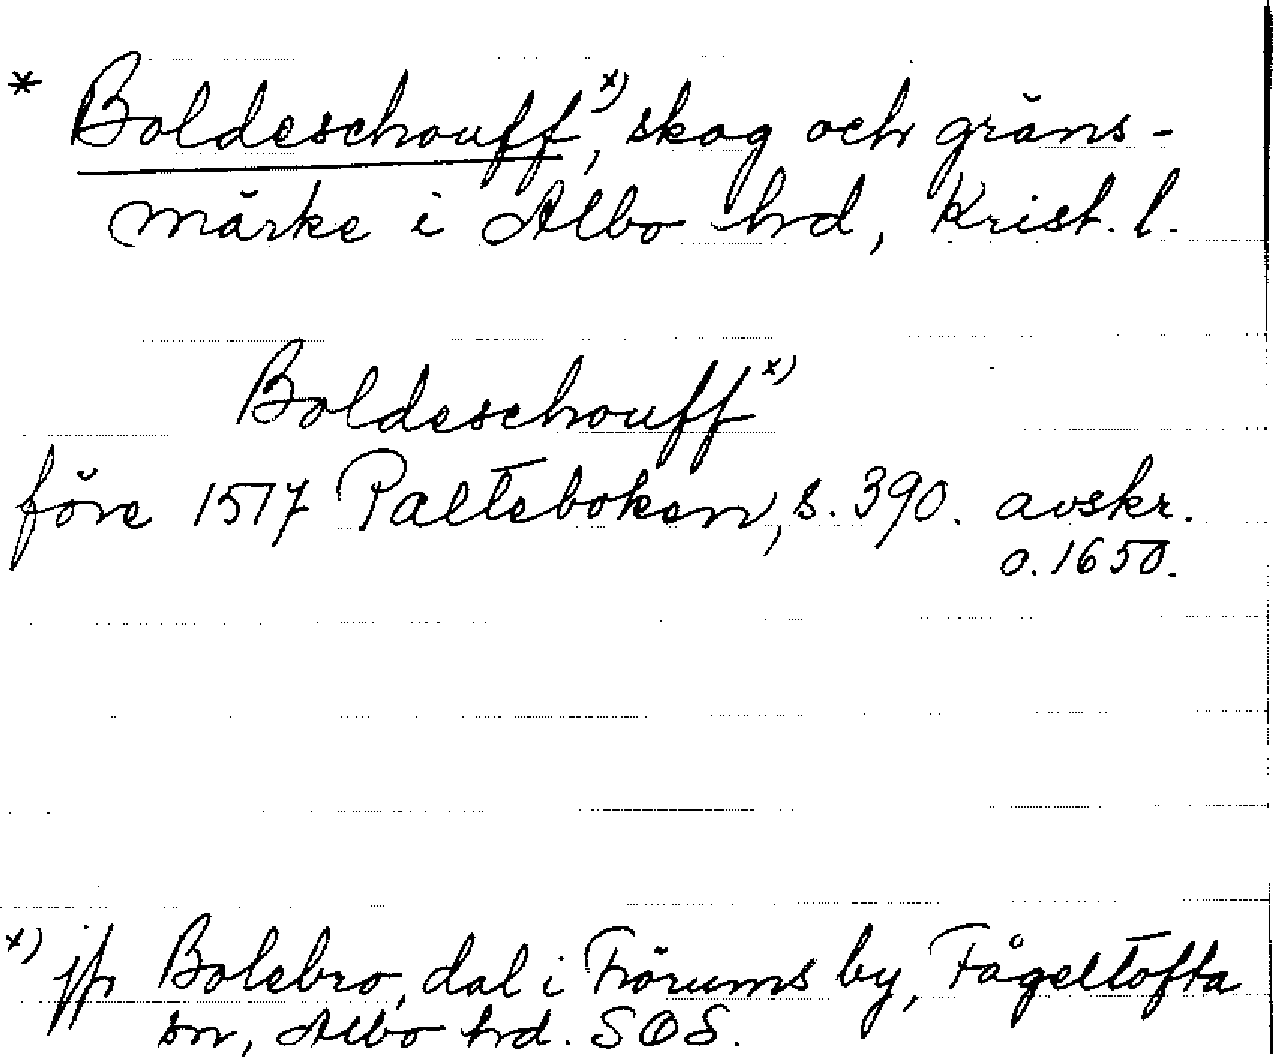 * Boldeschouff,ˣ⁾ skog och gräns-
märke i Albo hrd, Krist. l.
Boldeschouffˣ⁾
före 1517 Palteboken, s. 390. avskr.
o. 1650.
ˣ⁾ jfr Bolebro, dal i Frörums by, Fågeltofta
sn, Albo hrd. SOS.